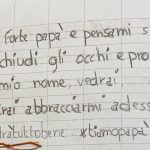 Forte papà e pensami s
chiudi gli occhi e pro
mio nome, vedrai,
rai abbracciarmi adess
ràtuttobene #tiamopapà